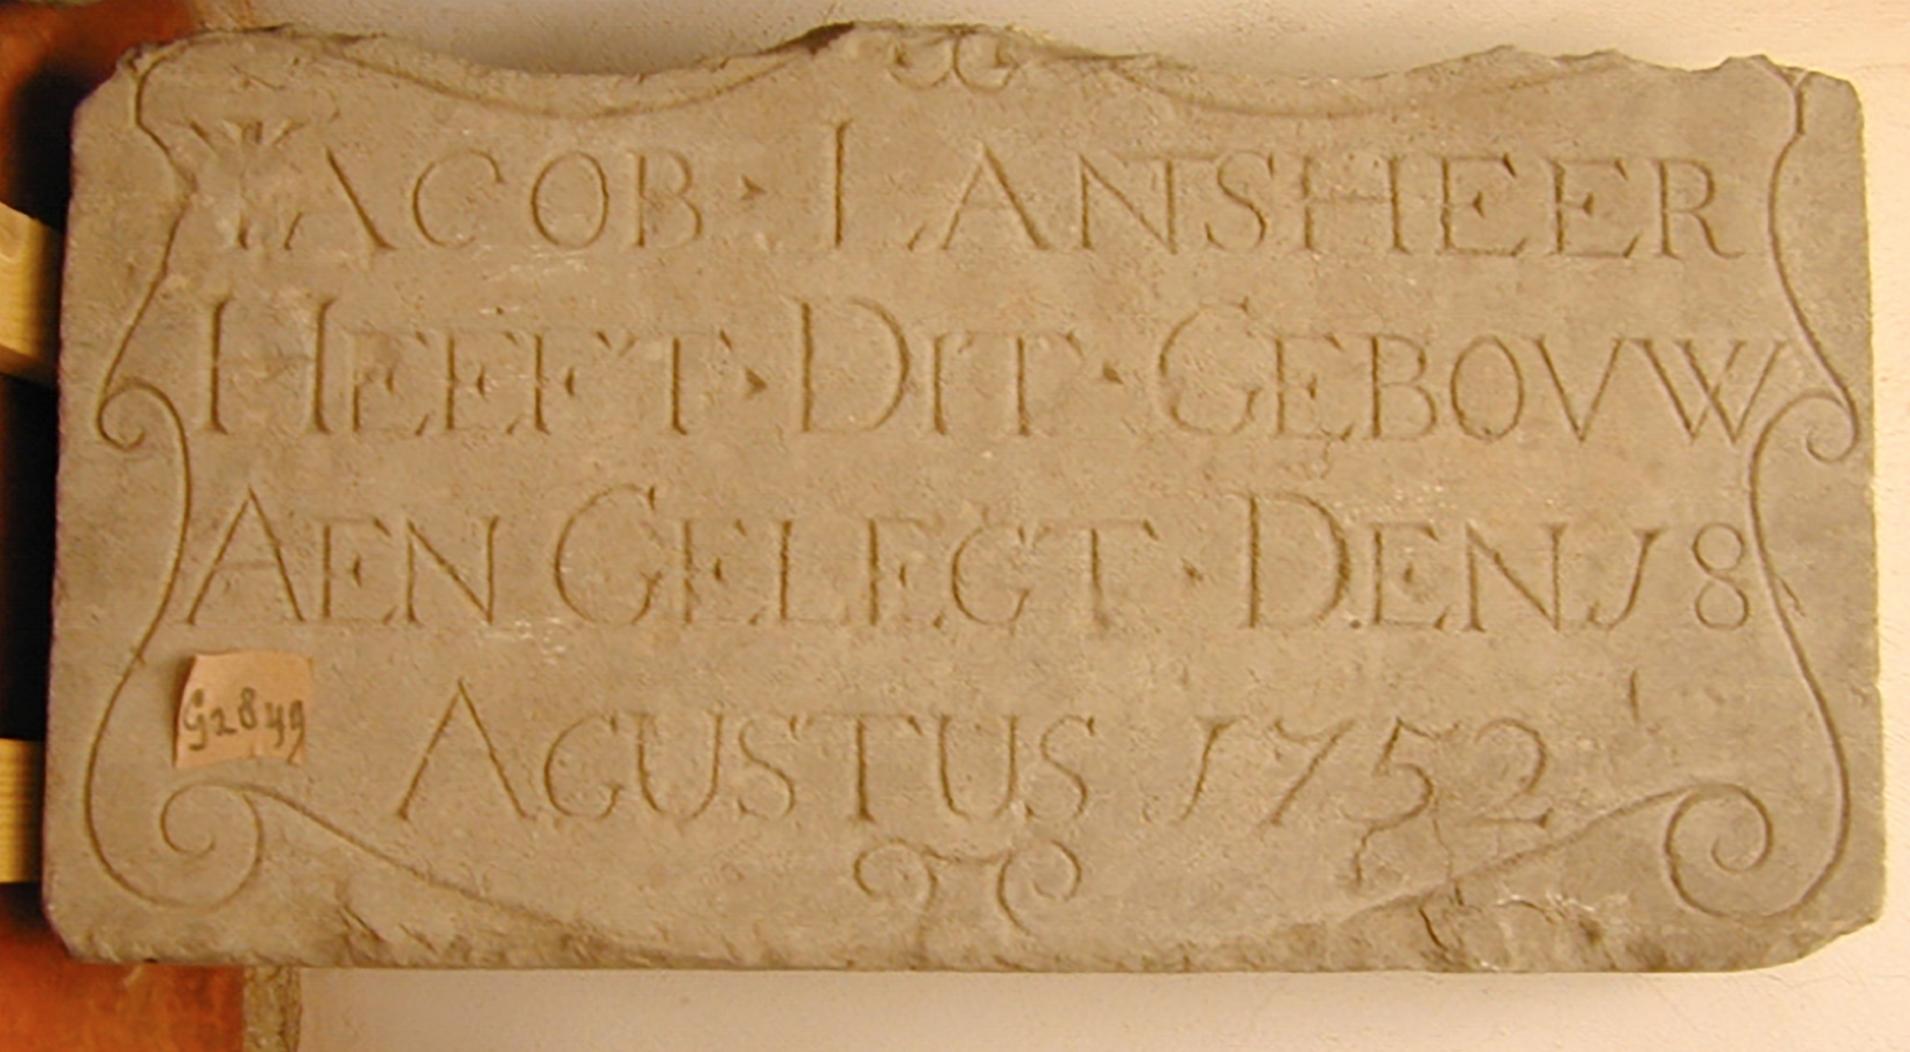 IACOB · LANSHEER
HEEFT · DIT · GEBOVW
AEN GELEGT · DEN 18
AGUSTUS 1752
G2849